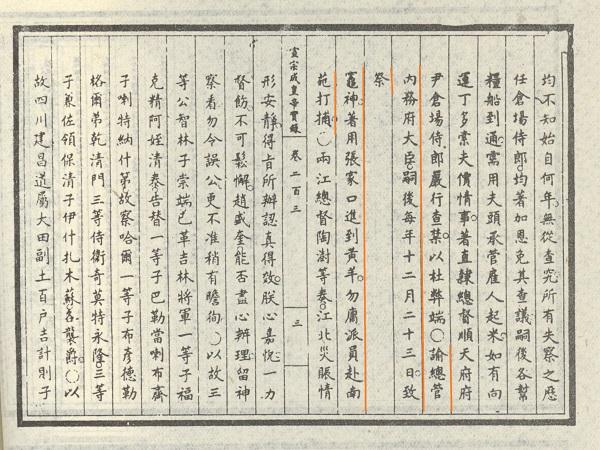 均不知始自何年。無從查究所有失察之歷
任倉場侍郎。均著加恩免其查議。嗣後各幫
糧船到通。需用夫頭承管雇人起米。如有向
運丁多索夫價情事。著直隸總督順天府府
尹倉場侍郎嚴行查禁。以杜弊端。○諭總管
內務府大臣。嗣後每年十二月二十三日致
祭
竈神。著用張家口進到黃羊。勿庸派員赴南
苑打捕。○兩江總督陶澍等奏。江北災賑情
宣宗成皇帝實錄 卷二百三 三
形安靜。得旨所辦認真得效。朕心嘉悅。一力
督飭。不可鬆懈。趙盛奎能否盡心辦理。留神
察看。勿令誤公。更不准稍有瞻徇。○以故三
等公智林子崇端。已革吉林將軍一等子福
克精阿姪清泰。告替一等子巴勒當喇布齋
子喇特納什第。故察哈爾一等子布彥德勒
格爾弟乾清門三等侍衛奇莫特永隆。三等
子兼佐領保清子伊什扎木蘇。各襲爵。○以
故四川建昌道屬大田副土百戶吉計則子